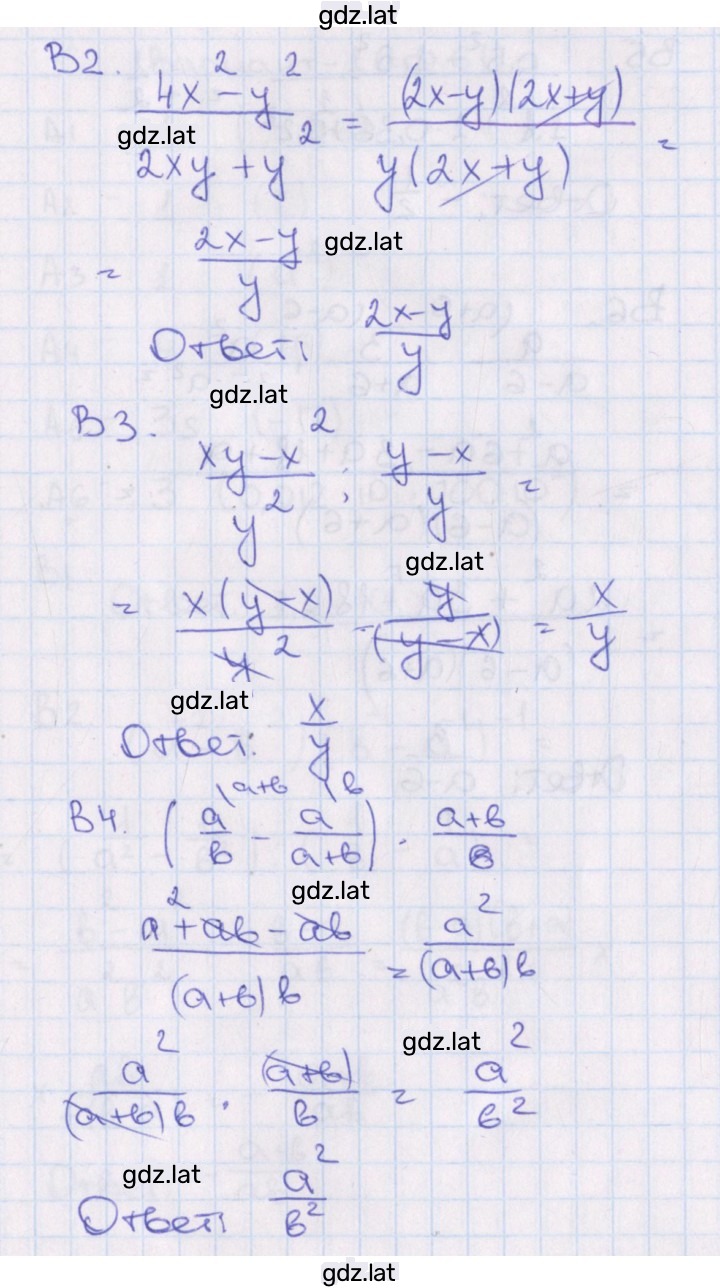 gdz.lat
B2. (4x² - y²)/(2xy + y²) = ((2x-y)(2x+y))/(y(2x+y)) =
gdz.lat
= (2x-y)/y gdz.lat
Ответ: (2x-y)/y
gdz.lat
B3. (xy-x²)/y² : (y-x)/y =
gdz.lat
= (x(y-x))/y² · y/(y-x) = x/y
gdz.lat
Ответ: x/y
B4. (a/в \a+в - a/(a+в) \в) · (a+в)/в
gdz.lat
(a²+aв-aв)/((a+в)в) = a²/((a+в)в)
gdz.lat
a²/((a+в)в) · (a+в)/в = a²/в²
gdz.lat
Ответ: a²/в²
gdz.lat